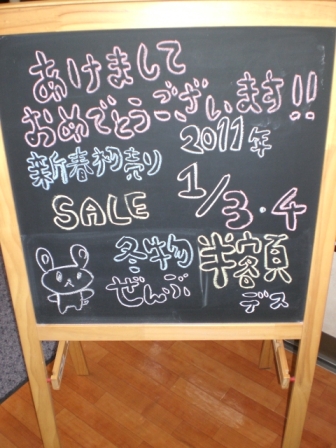 あけまして
おめでとうございます!!
2011年
新春初売り
SALE
1/3・4
冬物
ぜんぶ
半額
デス